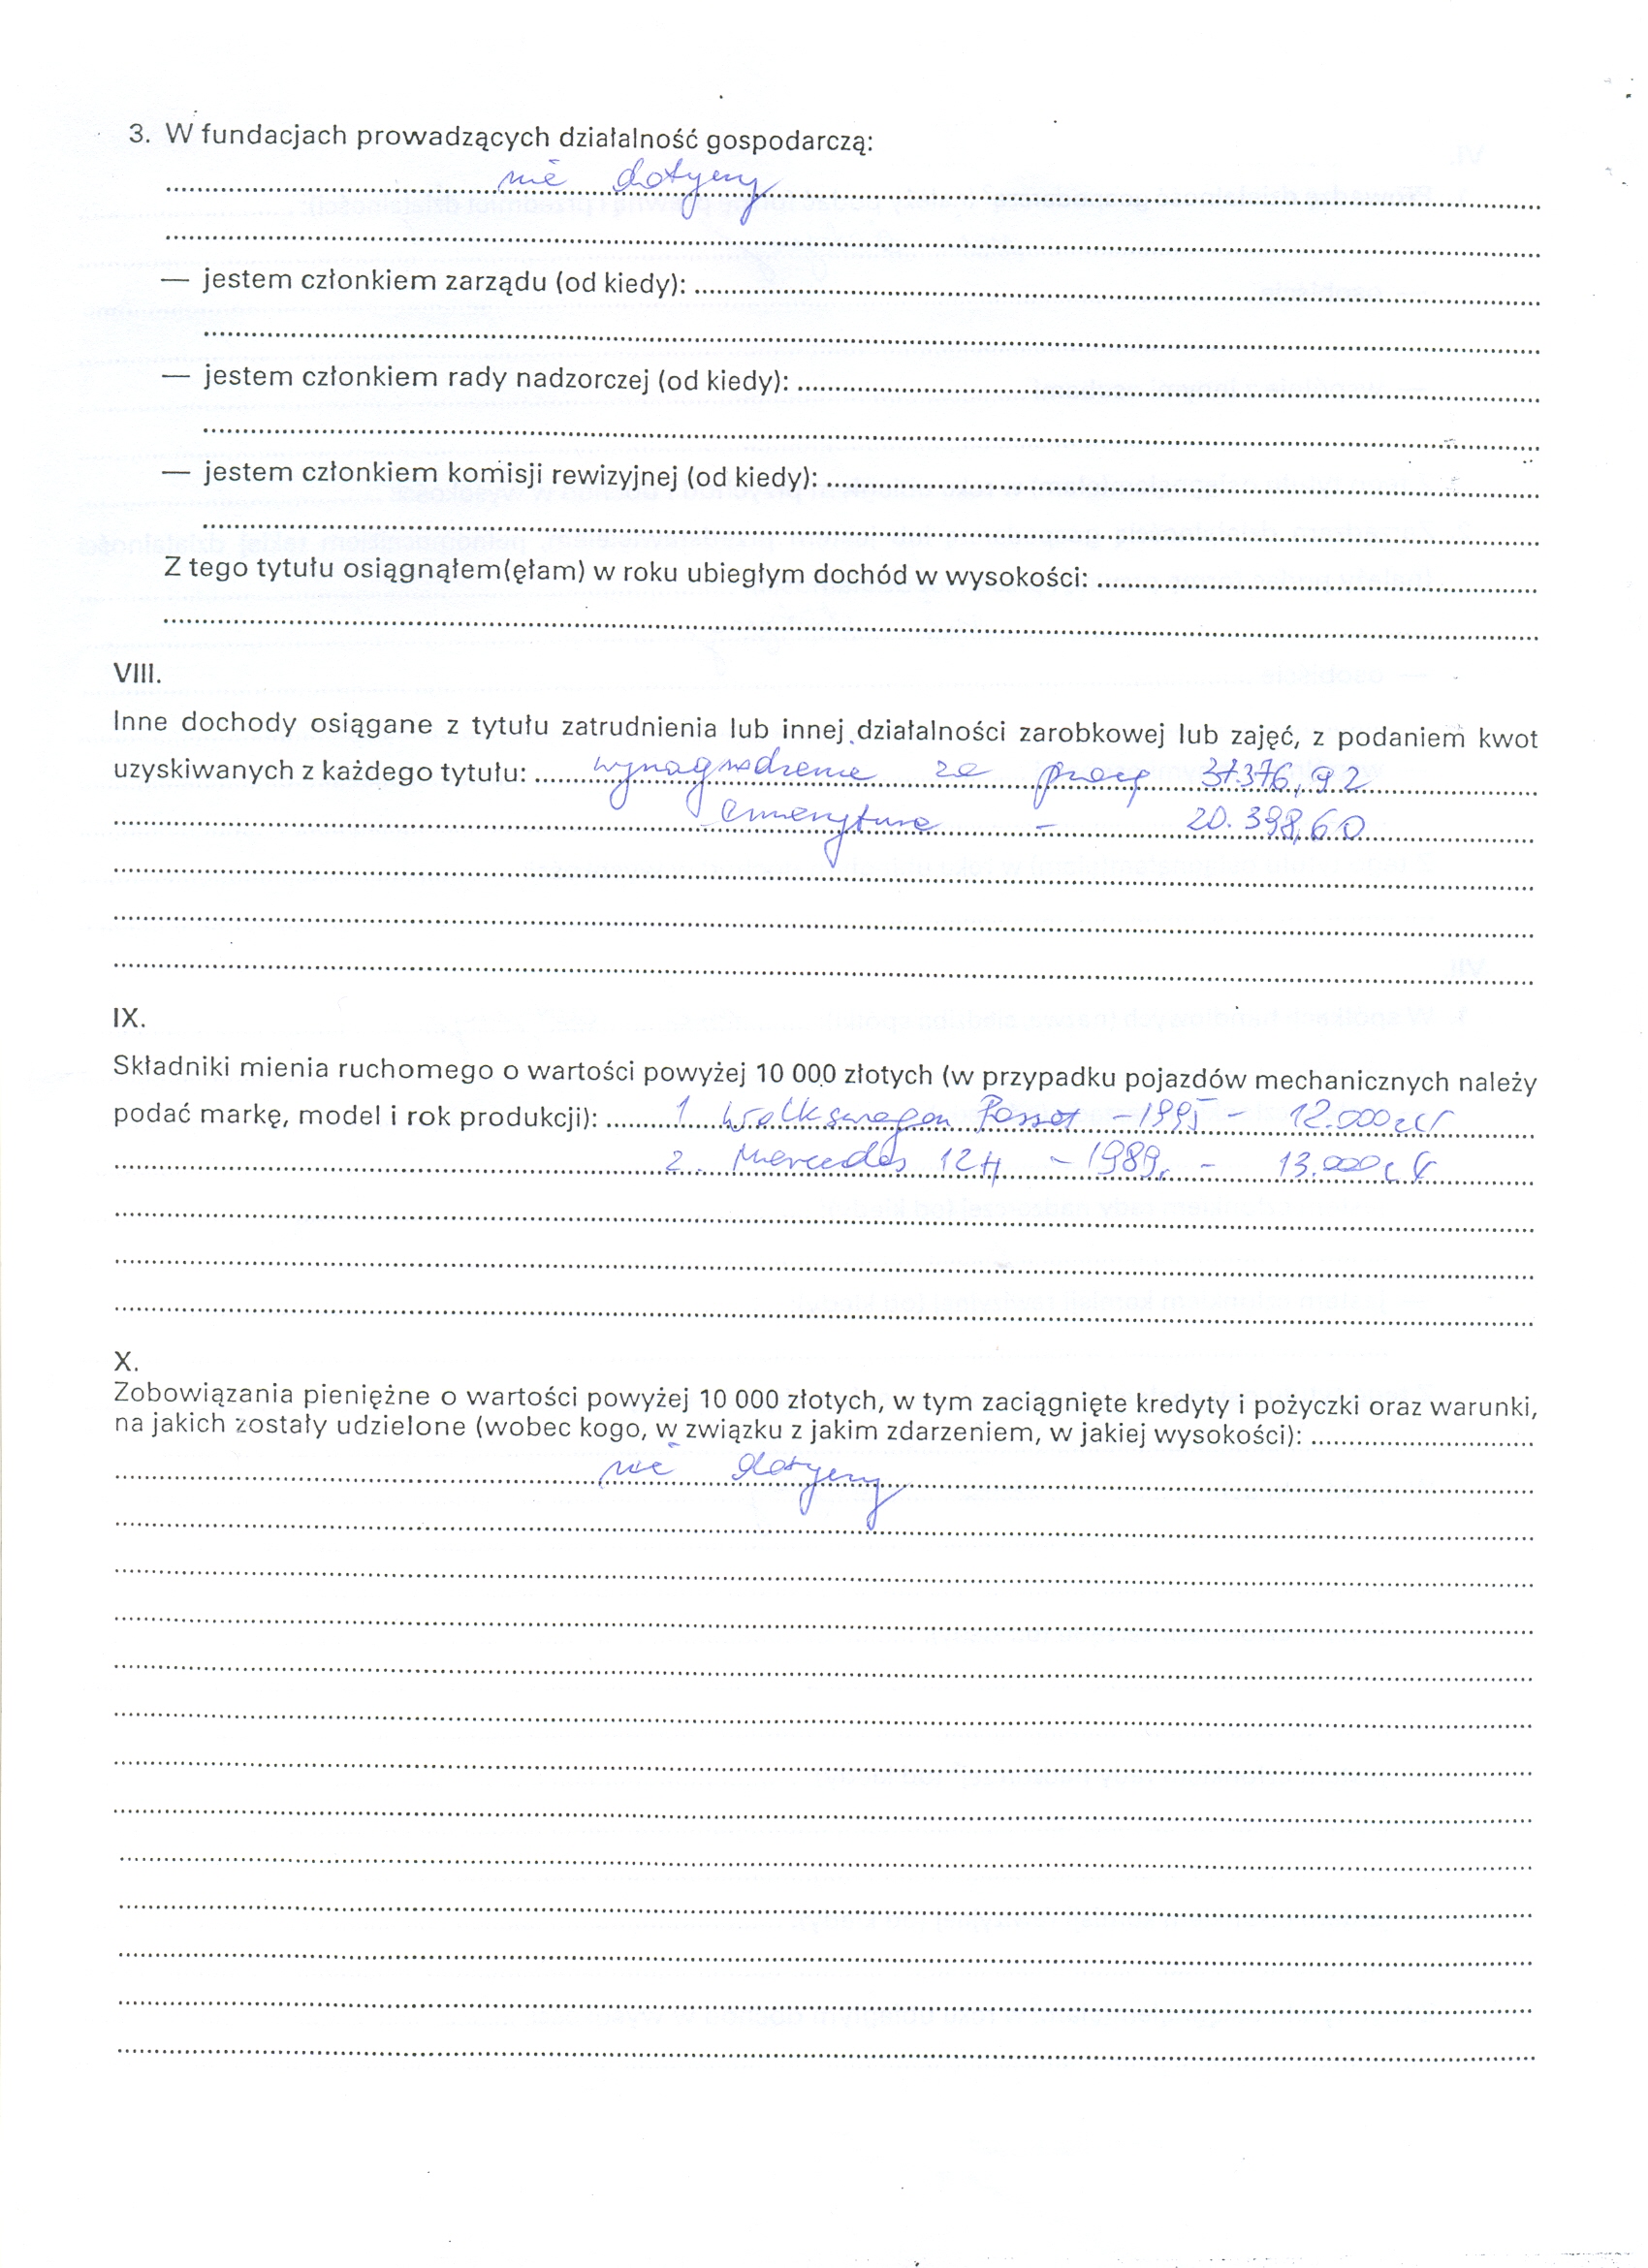 3. W fundacjach prowadzących działalność gospodarczą:
nie dotyczy
— jestem członkiem zarządu (od kiedy):
— jestem członkiem rady nadzorczej (od kiedy):
— jestem członkiem komisji rewizyjnej (od kiedy):
Z tego tytułu osiągnąłem(ęłam) w roku ubiegłym dochód w wysokości:
VIII.
Inne dochody osiągane z tytułu zatrudnienia lub innej działalności zarobkowej lub zajęć, z podaniem kwot
uzyskiwanych z każdego tytułu: wynagrodzenie za pracę 37.376,92
emerytura - 20.398,60
IX.
Składniki mienia ruchomego o wartości powyżej 10 000 złotych (w przypadku pojazdów mechanicznych należy
podać markę, model i rok produkcji): 1. Wolkswagen Passat - 1995 - 12.000 zł
2. Mercedes 124 - 1989r. - 13.000 zł
X.
Zobowiązania pieniężne o wartości powyżej 10 000 złotych, w tym zaciągnięte kredyty i pożyczki oraz warunki,
na jakich zostały udzielone (wobec kogo, w związku z jakim zdarzeniem, w jakiej wysokości):
nie dotyczy